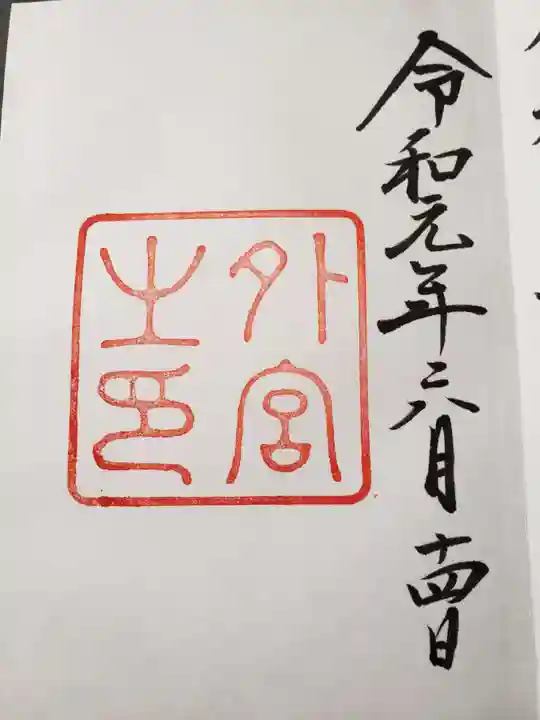 令和元年六月十四日
外宮
之印